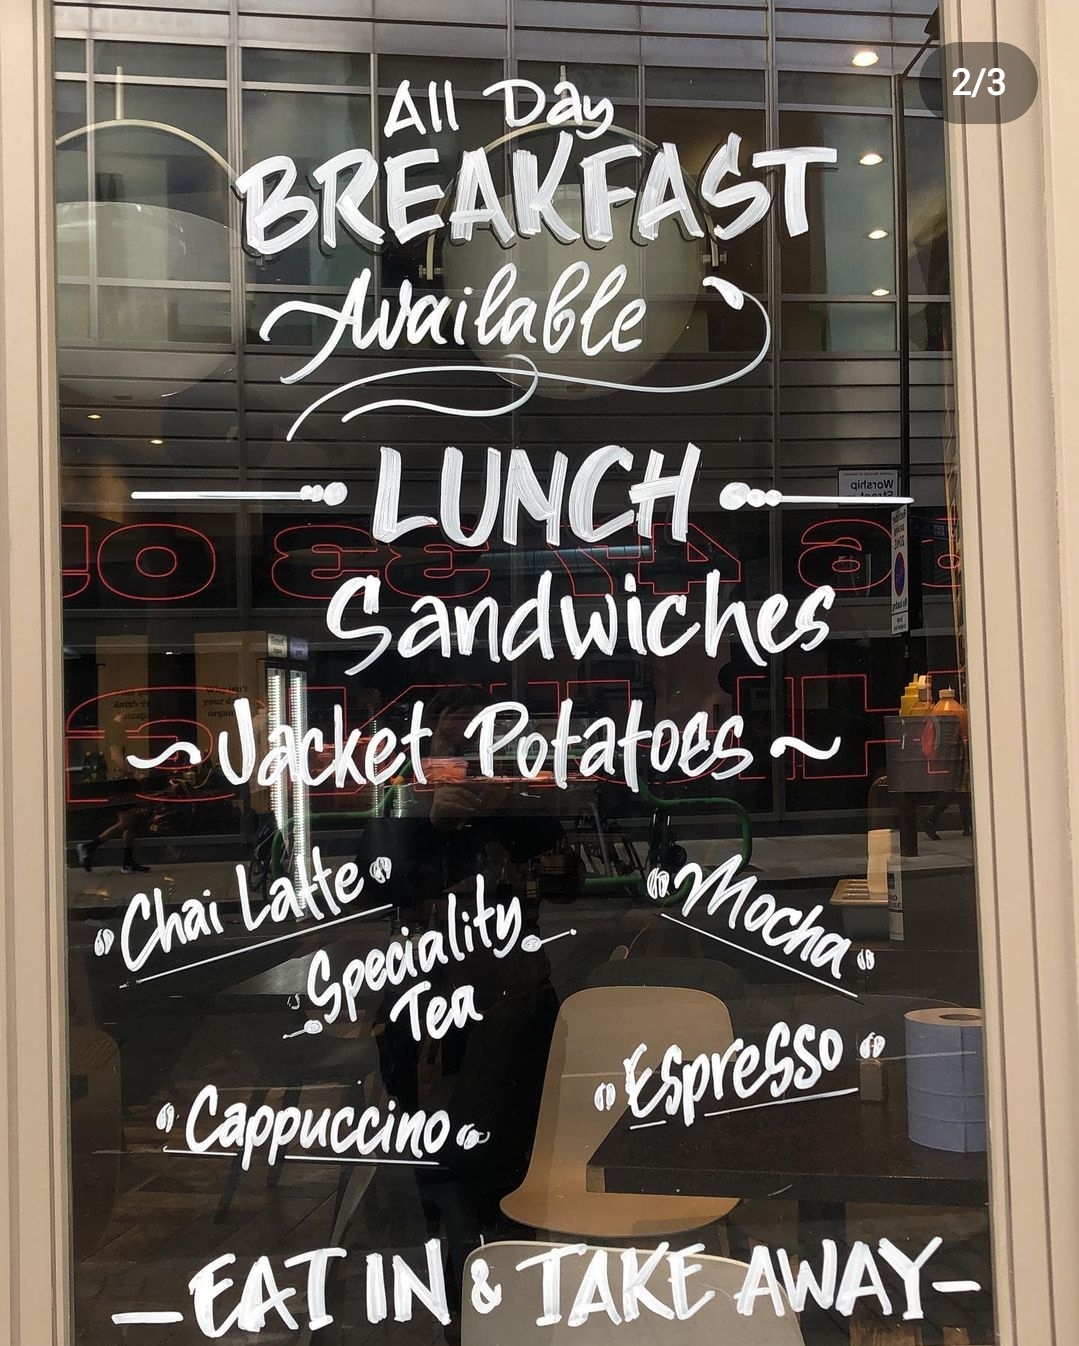 2/3
All Day
BREAKFAST
Available
LUNCH
Worship
Street
Sandwiches
~Jacket Potatoes~
"Chai Latte"
Speciality
Tea
"Mocha"
Espresso
Cappuccino
-EAT IN & TAKE AWAY-